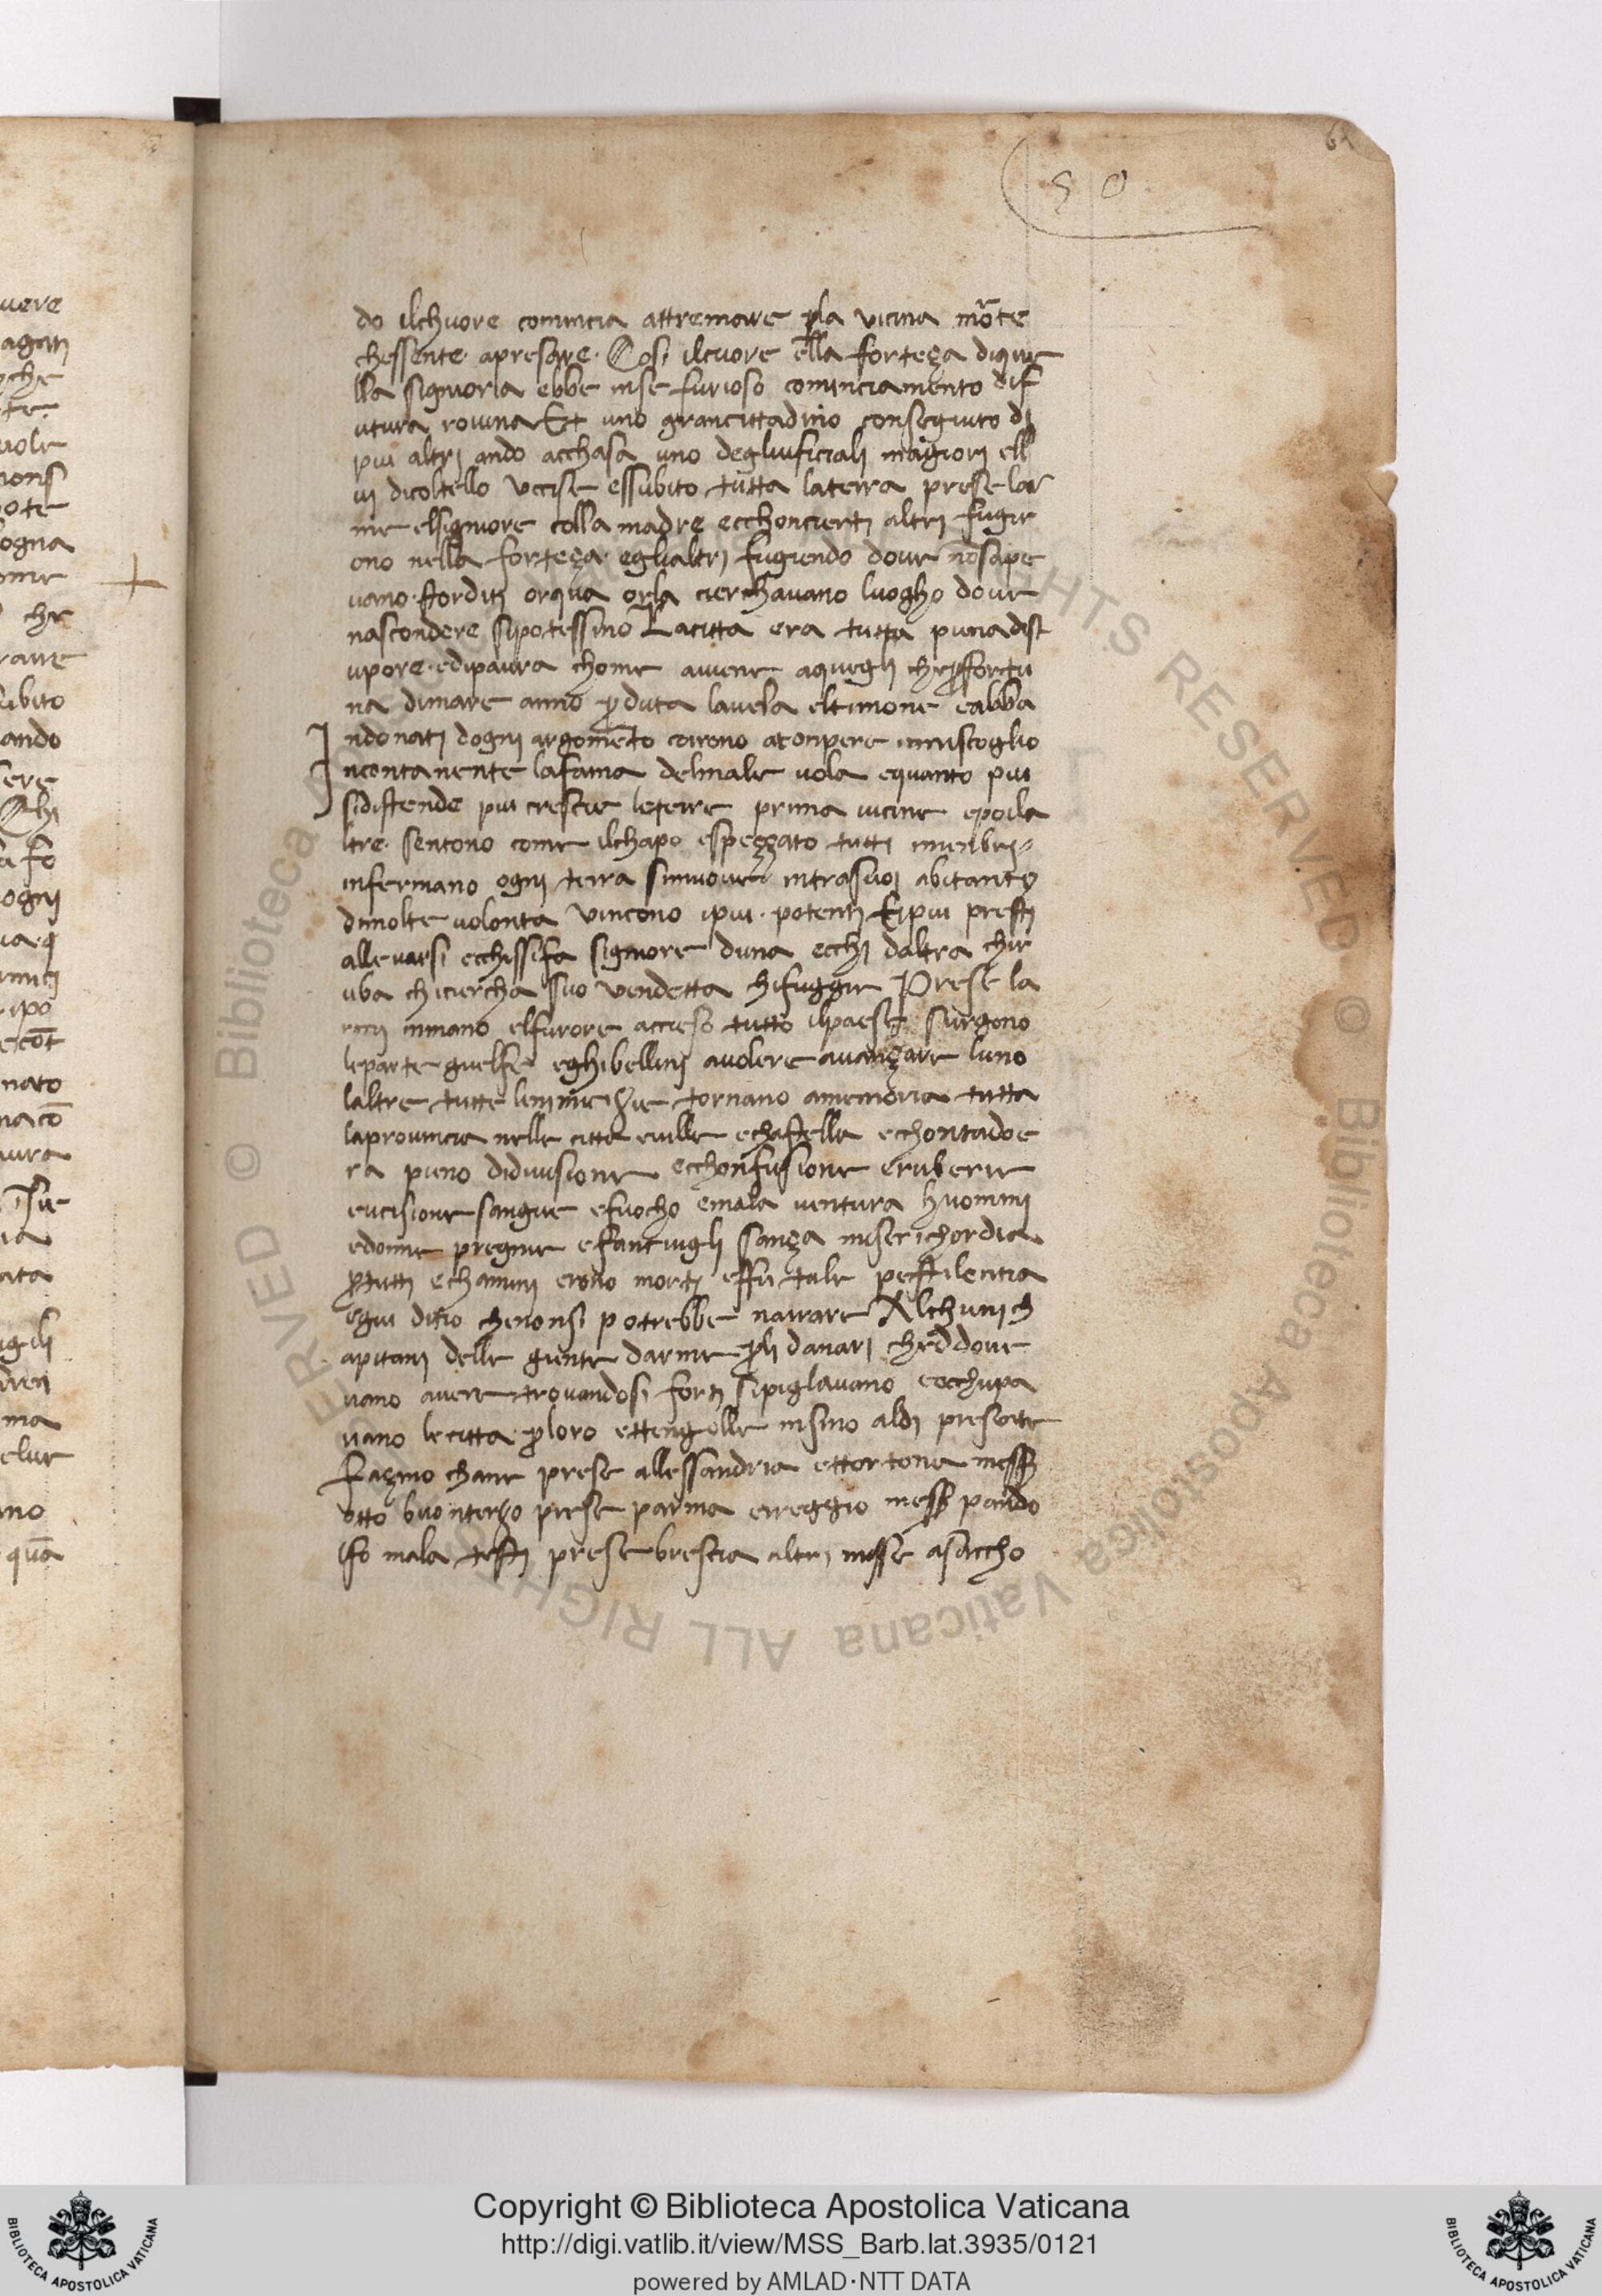 61
50
do ilchuore comincia attremare pla vicina morte
chessente apresare. Cosi ilcuore ella forteça dique
lla signoria ebbe inse furioso cominciamento dif
utura rouina Et uno grancittadino conseguito di
piu altri ando acchasa uno degliuficiali magiori ell
ui dicoltello uccise essubito tutta laterra prese lar
me elsignore colla madre ecchoncierti altri fugir
ono nella forteça eglialtri fugiendo doue nōsape
uano storditi orqua orla cierchauano luogho doue
nascondere sipotessino Lacitta era tutta piena dist
upore edipaura chome auiene aquegli che pfortu
na dimare anno pduta lauela eltimone eabba
ndonati dogni argomēto corono aronpere inniscoglio
Incontanente lafama delmale uola equanto piu
sidistende piu crescie leterre prima uicine epoila
ltre sentono come ilchapo espeççato tutti imenbri
infermano ogni terra simuoue intrasuoi abitante
dimolte uolonta uincono ipiu potenti Eipiu presti
alleuarsi ecchissifa signore duna ecchi daltra chir
uba chiciercha suo uendetta chifuggie Prese la
rmi inmano elfurore accieso tutto ilpaese surgono
leparte guelfe eghibellini auolere auançare luno
laltre tutte lenimiciçie tornano amemoria tutta
laprouincia nelle citta euille echastella echontadoe
ra pieno didiuisione ecchonfusione eruberie
eucisione sangue efuocho emala uentura huomini
edonne pregne efanciugli sança miserichordia
ptutti echamini erono morti effu tale pestilentia
chenonsi potrebbe narrare Alchuni ch
apitani delle giente darme pli danari chedoue
uano auere trouandosi forti sipiglauano eocchupa
uano lecitta ploro ettengolle insino aldi presente
Façino chane prese allessandria ettortona mess
otto buonterço prese parma erreggio mess pando
lfo mala testi prese brescia altri messe asaccho
Copyright © Biblioteca Apostolica Vaticana
http://digi.vatlib.it/view/MSS_Barb.lat.3935/0121
powered by AMLAD·NTT DATA
BIBLIOTECA APOSTOLICA VATICANA
BIBLIOTECA APOSTOLICA VATICANA